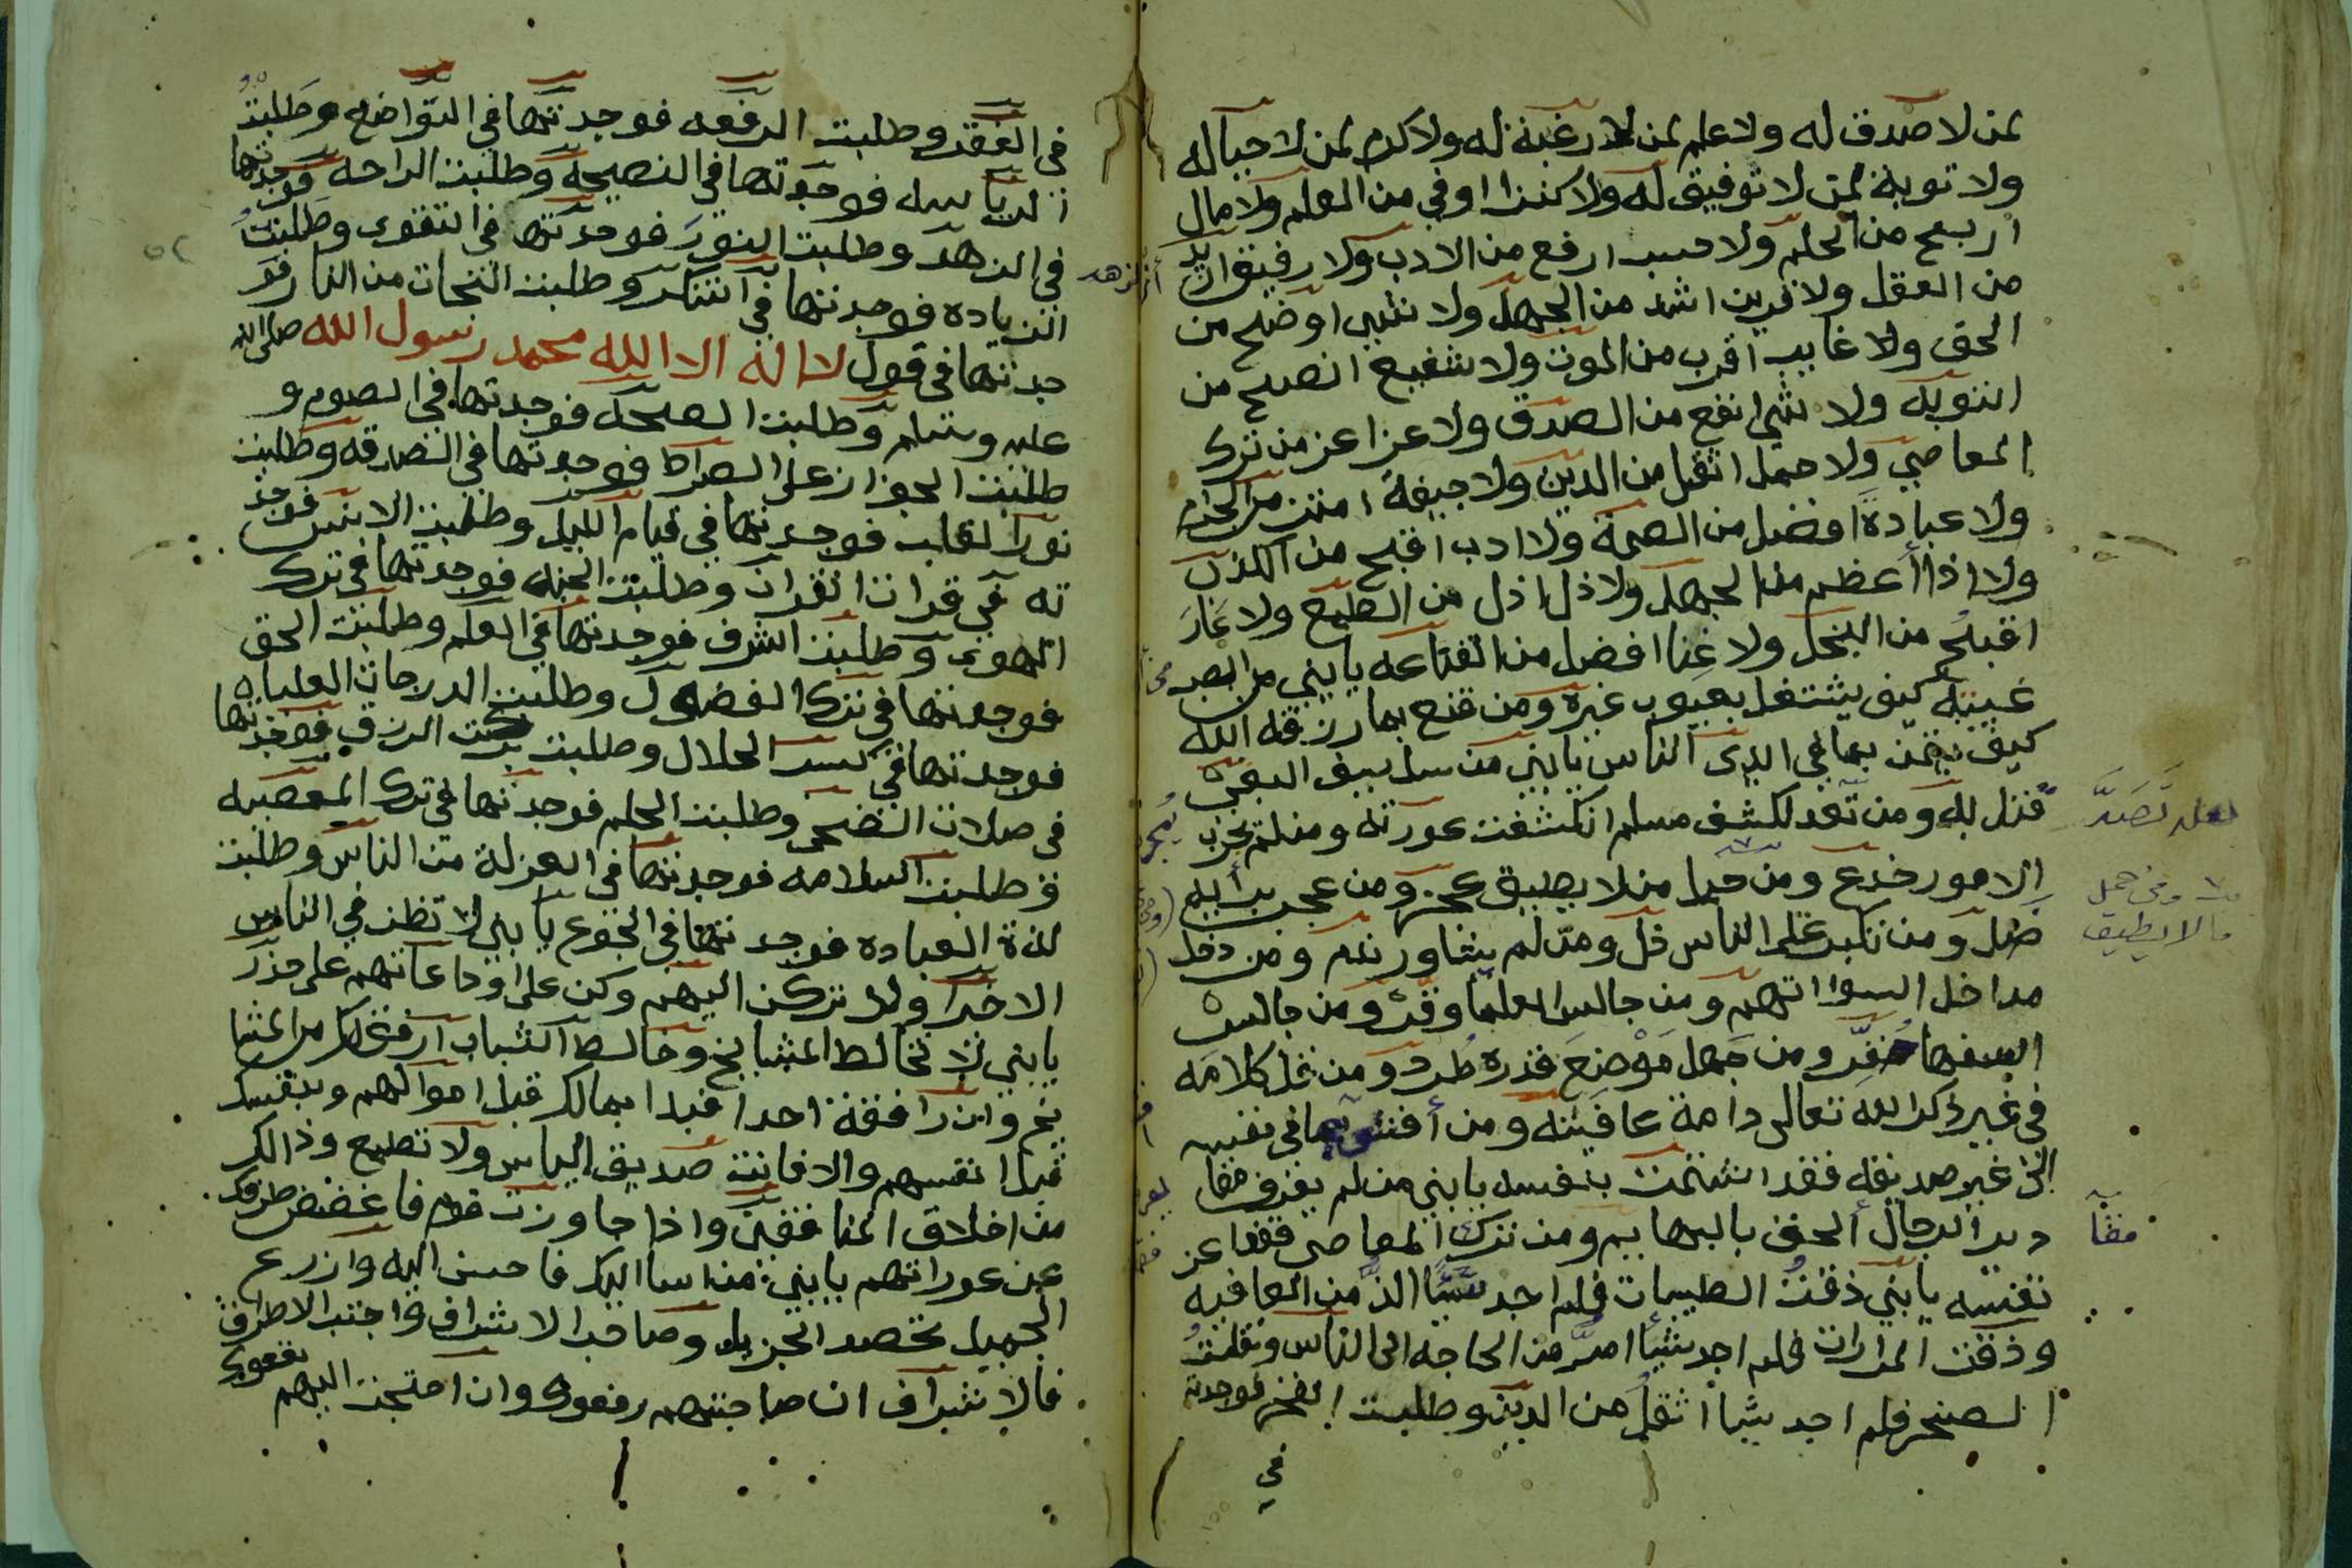 لمن لا صدق له ولا علم لمن لا رغبة له ولا كرم لمن لا حيا له
ولا توبة لمن لا توفيق له ولا كنزا اوفي من العلم ولا مال
اربح من الحلم ولا حسب ارفع من الادب ولا رفيق ازيد
من العقل ولا قرين اشد من الجهل ولا شيي اوضح من
الحق ولا غايب اقرب من الموت ولا شفيع انصح من
التوبه ولا شي انفع من الصدق ولا عزا عز من ترك
المعاصي ولا حمل اثقل من الدين ولا جيفة انتن من
ولا عبادة افضل من الصمة ولا ادب اقبح من الكذب
ولا اذا أعظم من الجهل ولا ذل اذل من الطمع ولا عار
اقبح من البخل ولا غنا افضل من القناعه يا بني من ابصر
عيبه كيف يشتغل بعيوب غيره ومن قنع بما رزقه الله
كيف يتمن بما في ايدى الناس يا بني من سل سيف البغي
قتل به ومن تعد لكشف مسلم انكشفت عورته ومن لم يجرب
الامور خدع ومن حمل من لا يطيق عجز ومن عجب برأيه
ضل ومن تكبر على الناس ذل ومن لم يشاور ندم ومن دخل
مداخل السوا اتهم ومن جالس العلما وقر ومن جالس
السفها حقر ومن جهل موضع قدره طرد ومن قل كلامه
في غير ذكر الله تعالى دامة عافيته ومن أفشى بما في نفسه
الى غير صديقه فقد اشتمت بنفسه يا بني من لم يعرف مقا
دير الرجال ألحق بالبهايم ومن ترك المعاصي فقد اعز
نفسه يا بني ذقت الطيبات فلم اجد شيًا الذ من العافيه
وذقت المرارات فلم اجد شيأ امر من الحاجه الى الناس ونقلت
الصخر فلم اجد شيأ اثقل من الدين وطلبت الفخر فوجدته
في
لعله تَصَدَّ
ومن حمل
مالا يطيق
مقاَ
الزهد
في الفقر وطلبت الرفعه فوجدتها في التواضع وطلبت
الرياسه فوجدتها في النصيحه وطلبت الراحه فوجدتها
في الزهد وطلبت النور فوجدتها في التقوى وطلبت
الزياده فوجدتها في الشكر وطلبت النجات من النار فو
جدتها في قول لا اله الا الله محمد رسول الله صلى الله
عليه وسلم وطلبت الصحه فوجدتها في الصوم و
طلبت الجواز على الصراط فوجدتها في الصدقه وطلبت
نور القلب فوجدتها في قيام الليل وطلبت الانس فوجد
ته في قرات القران وطلبت الجنه فوجدتها في ترك
الهوى وطلبت الشرف فوجدتها في العلم وطلبت الحق
فوجدتها في ترك الفضول وطلبت الدرجات العليا
فوجدتها في كسب الحلال وطلبت بركت الرزق فوجدتها
في صلات الضحى وطلبت الحلم فوجدتها في ترك المعصيه
وطلبت السلامه فوجدتها في العزلة من الناس وطلبت
لذة العباده فوجدتها في الجوع يا بني لا تظن في الناس
الا خيرا ولا تركن اليهم وكن على اودا عاتهم على حذر
يا بني لا تخالط المشايخ وخالط الشباب ارفق لك من المشا
يخ وان رافقة احدا فبدا بمالك قبل اموالهم وبنفسك
قبل انفسهم والا فانت صديق الياس ولا تطمع وذالك
من اخلاق المنافقين واذا جاورت قوم فاغضض طرفك
عن عوراتهم يا بني من اسا اليك فاحسن اليه وازرع
الجميل تحصد الجزيل وصاحب الاشراف واجتنب الاطراف
فالاشراف ان صاحبتهم رفعوك وان احتجت اليهم
نفعوك